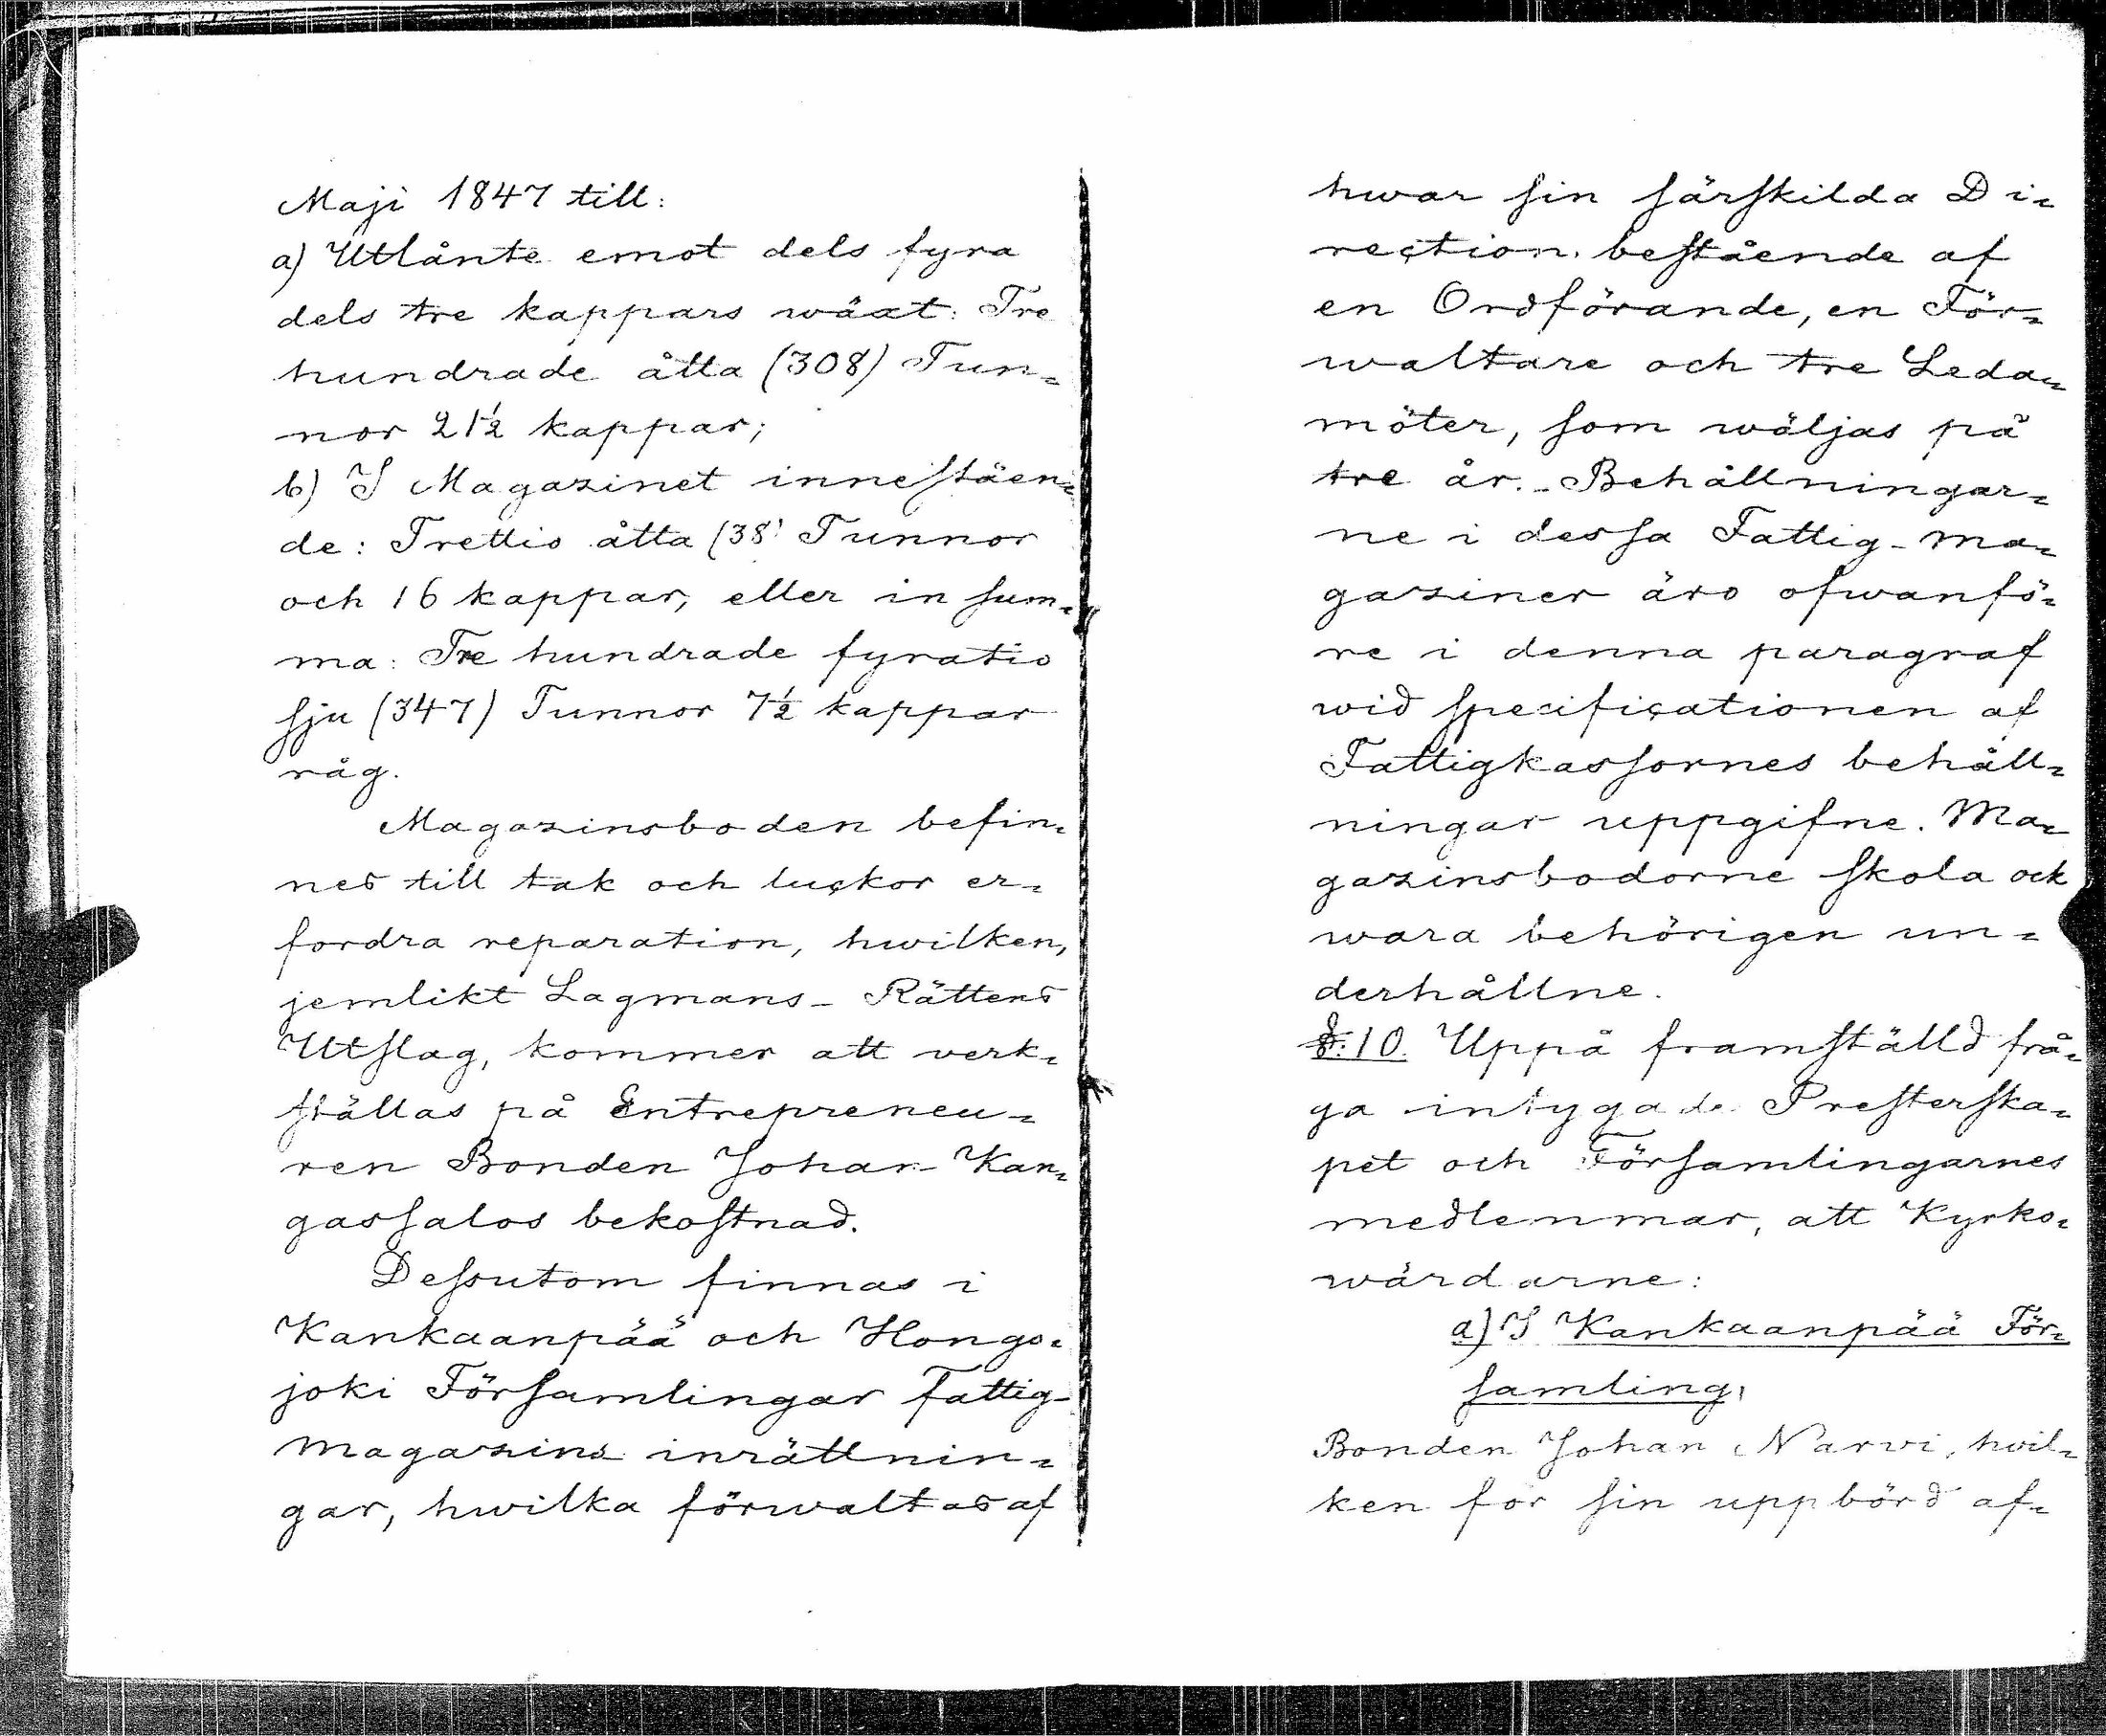 Maji 1847 till:
a) Utlånte emot dels fyra
dels tre kappars wäxt: Tre
hundrade åtta (308) Tun=
nor 21½ kappar;
b) I Magazinet inneståen=
de: Trettio åtta (38) Tunnor
och 16 kappar, eller in sum=
ma: Tre hundrade fyratio
sju (347) Tunnor 7½ kappar
råg.
Magazinsboden befin=
nes till tak och luckor er=
fordra reparation, hwilken,
jemlikt Lagmans-Rättens
Utslag, kommer att verk=
ställas på Entrepreneu=
ren Bonden Johan Kan=
gassalos bekostnad.
Dessutom finnas i
Kankaanpää och Hongo=
joki Församlingar Fattig-
Magazins inrättnin=
gar, hwilka förwaltas af
hwar sin särskilda Di=
rection bestående af
en Ordförande, en För=
waltare och tre Leda=
möter, som wäljas på
tre år. - Behållningar=
ne i dessa Fattig-Ma=
gaziner äro ofwanfö=
re i denna paragraf
wid specificationen af
Fattigkassornes behåll=
ningar uppgifne. Ma=
gazinsbodorne skola ock
wara behörigen un=
derhållne.
§. 10. Uppå framställd frå=
ga intygade Presterska=
pet och Församlingarnes
medlemmar, att Kyrko=
wärdarne:
a) I Kankaanpää För=
samling,
Bonden Johan Narvi, hwil=
ken för sin uppbörd af=